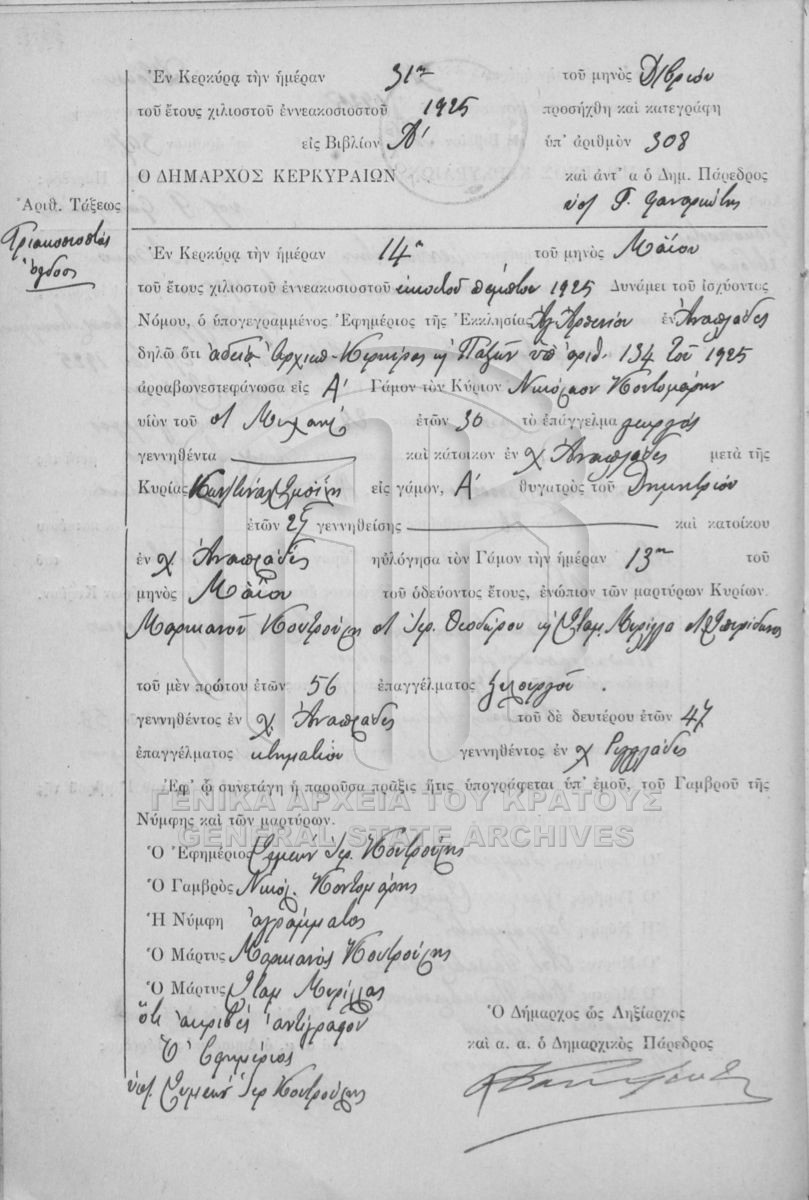 Ἐν Κερκύρᾳ τὴν ἡμέραν 31ην τοῦ μηνὸς Δ/βρίου
τοῦ ἔτους χιλιοστοῦ ἐννεακοσιοστοῦ 1925 προσήχθη καὶ κατεγράφη
εἰς Βιβλίον Α' ὑπ' ἀριθμὸν 308
Ὁ ΔΗΜΑΡΧΟΣ ΚΕΡΚΥΡΑΙΩΝ καὶ ἀντ' α ὁ Δημ. Πάρεδρος
Ἀριθ. Τάξεως
Τριακοσιοστὸς
ὄγδοος
Ἐν Κερκύρᾳ τὴν ἡμέραν 14η τοῦ μηνὸς Μαΐου
τοῦ ἔτους χιλιοστοῦ ἐννεακοσιοστοῦ εἰκοστοῦ πέμπτου 1925 Δυνάμει τοῦ ἰσχύοντος
Νόμου, ὁ ὑπογεγραμμένος Ἐφημέριος τῆς Ἐκκλησίας Ἁγ. Ἀρσενίου ἐν Ἀναπλάδες
δηλῶ ὅτι ἀδείᾳ Ἀρχιεπ. Κερκύρας κ Παξῶν ὑπ ἀριθ. 134 τοῦ 1925
ἀρραβωνεστεφάνωσα εἰς Α' Γάμον τὸν Κύριον Νικόλαον Κοντομάρην
υἱὸν τοῦ Μιχαὴλ ἐτῶν 30 τὸ ἐπάγγελμα γεωργός
γεννηθέντα καὶ κάτοικον ἐν χ. Ἀναπλάδες μετὰ τῆς
Κυρίας εἰς γάμον, Α' θυγατρὸς τοῦ Δημητρίου
ἐτῶν γεννηθείσης καὶ κατοίκου
ἐν χ. Ἀναπλάδες ηὐλόγησα τὸν Γάμον τὴν ἡμέραν 13ην τοῦ
μηνὸς Μαΐου τοῦ ὁδεύοντος ἔτους, ἐνώπιον τῶν μαρτύρων Κυρίων
Μαρκιανοῦ Κουτρούλη Ἱερ. Θεοδώρου κ Σταμ. Μυρίλλα Σπυρίδωνος
τοῦ μὲν πρώτου ἐτῶν 56 ἐπαγγέλματος ξυλουργοῦ.
γεννηθέντος ἐν χ. Ἀναπλάδες τοῦ δὲ δευτέρου ἐτῶν 47
ἐπαγγέλματος κτηματίου γεννηθέντος ἐν χ
Ἐφ' ᾧ συνετάγη ἡ παροῦσα πρᾶξις ἥτις ὑπογράφεται ὑπ' ἐμοῦ, τοῦ Γαμβροῦ τῆς
Νύμφης καὶ τῶν μαρτύρων.
ΓΕΝΙΚΑ ΑΡΧΕΙΑ ΤΟΥ ΚΡΑΤΟΥΣ
GENERAL STATE ARCHIVES
Ὁ Ἐφημέριος Συμεὼν Ἱερ. Κουτρούλης
Ὁ Γαμβρὸς Νικόλ. Κοντομάρης
Ἡ Νύμφη ἀγράμματος
Ὁ Μάρτυς Μαρκιανὸς Κουτρούλης
Ὁ Μάρτυς Σταμ Μυρίλλας
ὅτι ἀκριβὲς ἀντίγραφον
Ὁ Ἐφημέριος
ὑπ. Συμεὼν Ἱερ Κουτρούλης
Ὁ Δήμαρχος ὡς Ληξίαρχος
καὶ α. α. ὁ Δημαρχικὸς Πάρεδρος